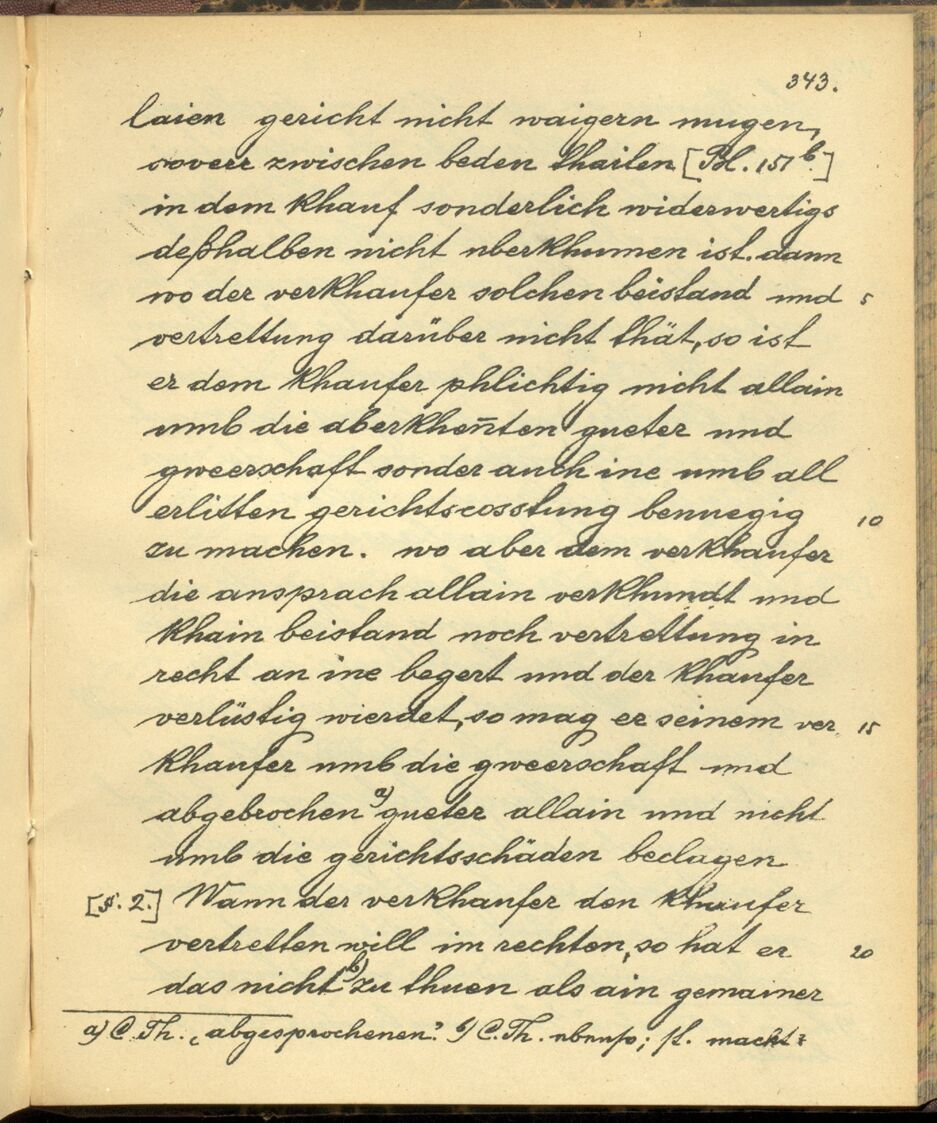 343.
laien gericht nicht waigern mugen,
soverr zwischen beden thailen [Bl. 151b.]
in dem khauf sonderlich widerwertigs
deßhalben nicht uberkhumen ist. dann
wo der verkhaufer solchen beistand und 5
vertrettung darüber nicht thät, so ist
er dem khaufer phlichtig nicht allain
umb die aberkhen̄ten gueter und
gweerschaft sonder auch ine umb all
erlitten gerichtscosstung benuegig 10
zu machen. wo aber dem verkhaufer
die ansprach allain verkhundt und
khain beistand noch vertrettung in
recht an ine begert und der khaufer
verlüstig wierdet, so mag er seinem ver 15
khaufer umb die gweerschaft und
abgebrochen a) gueter allain und nicht
umb die gerichtsschäden beclagen
[§. 2.] Wann der verkhaufer den khaufer
vertretten will im rechten, so hat er 20
das nicht b) zu thuen als ain gemainer
a) C. Th. „abgesprochenen". b) C. Th. st. macht: